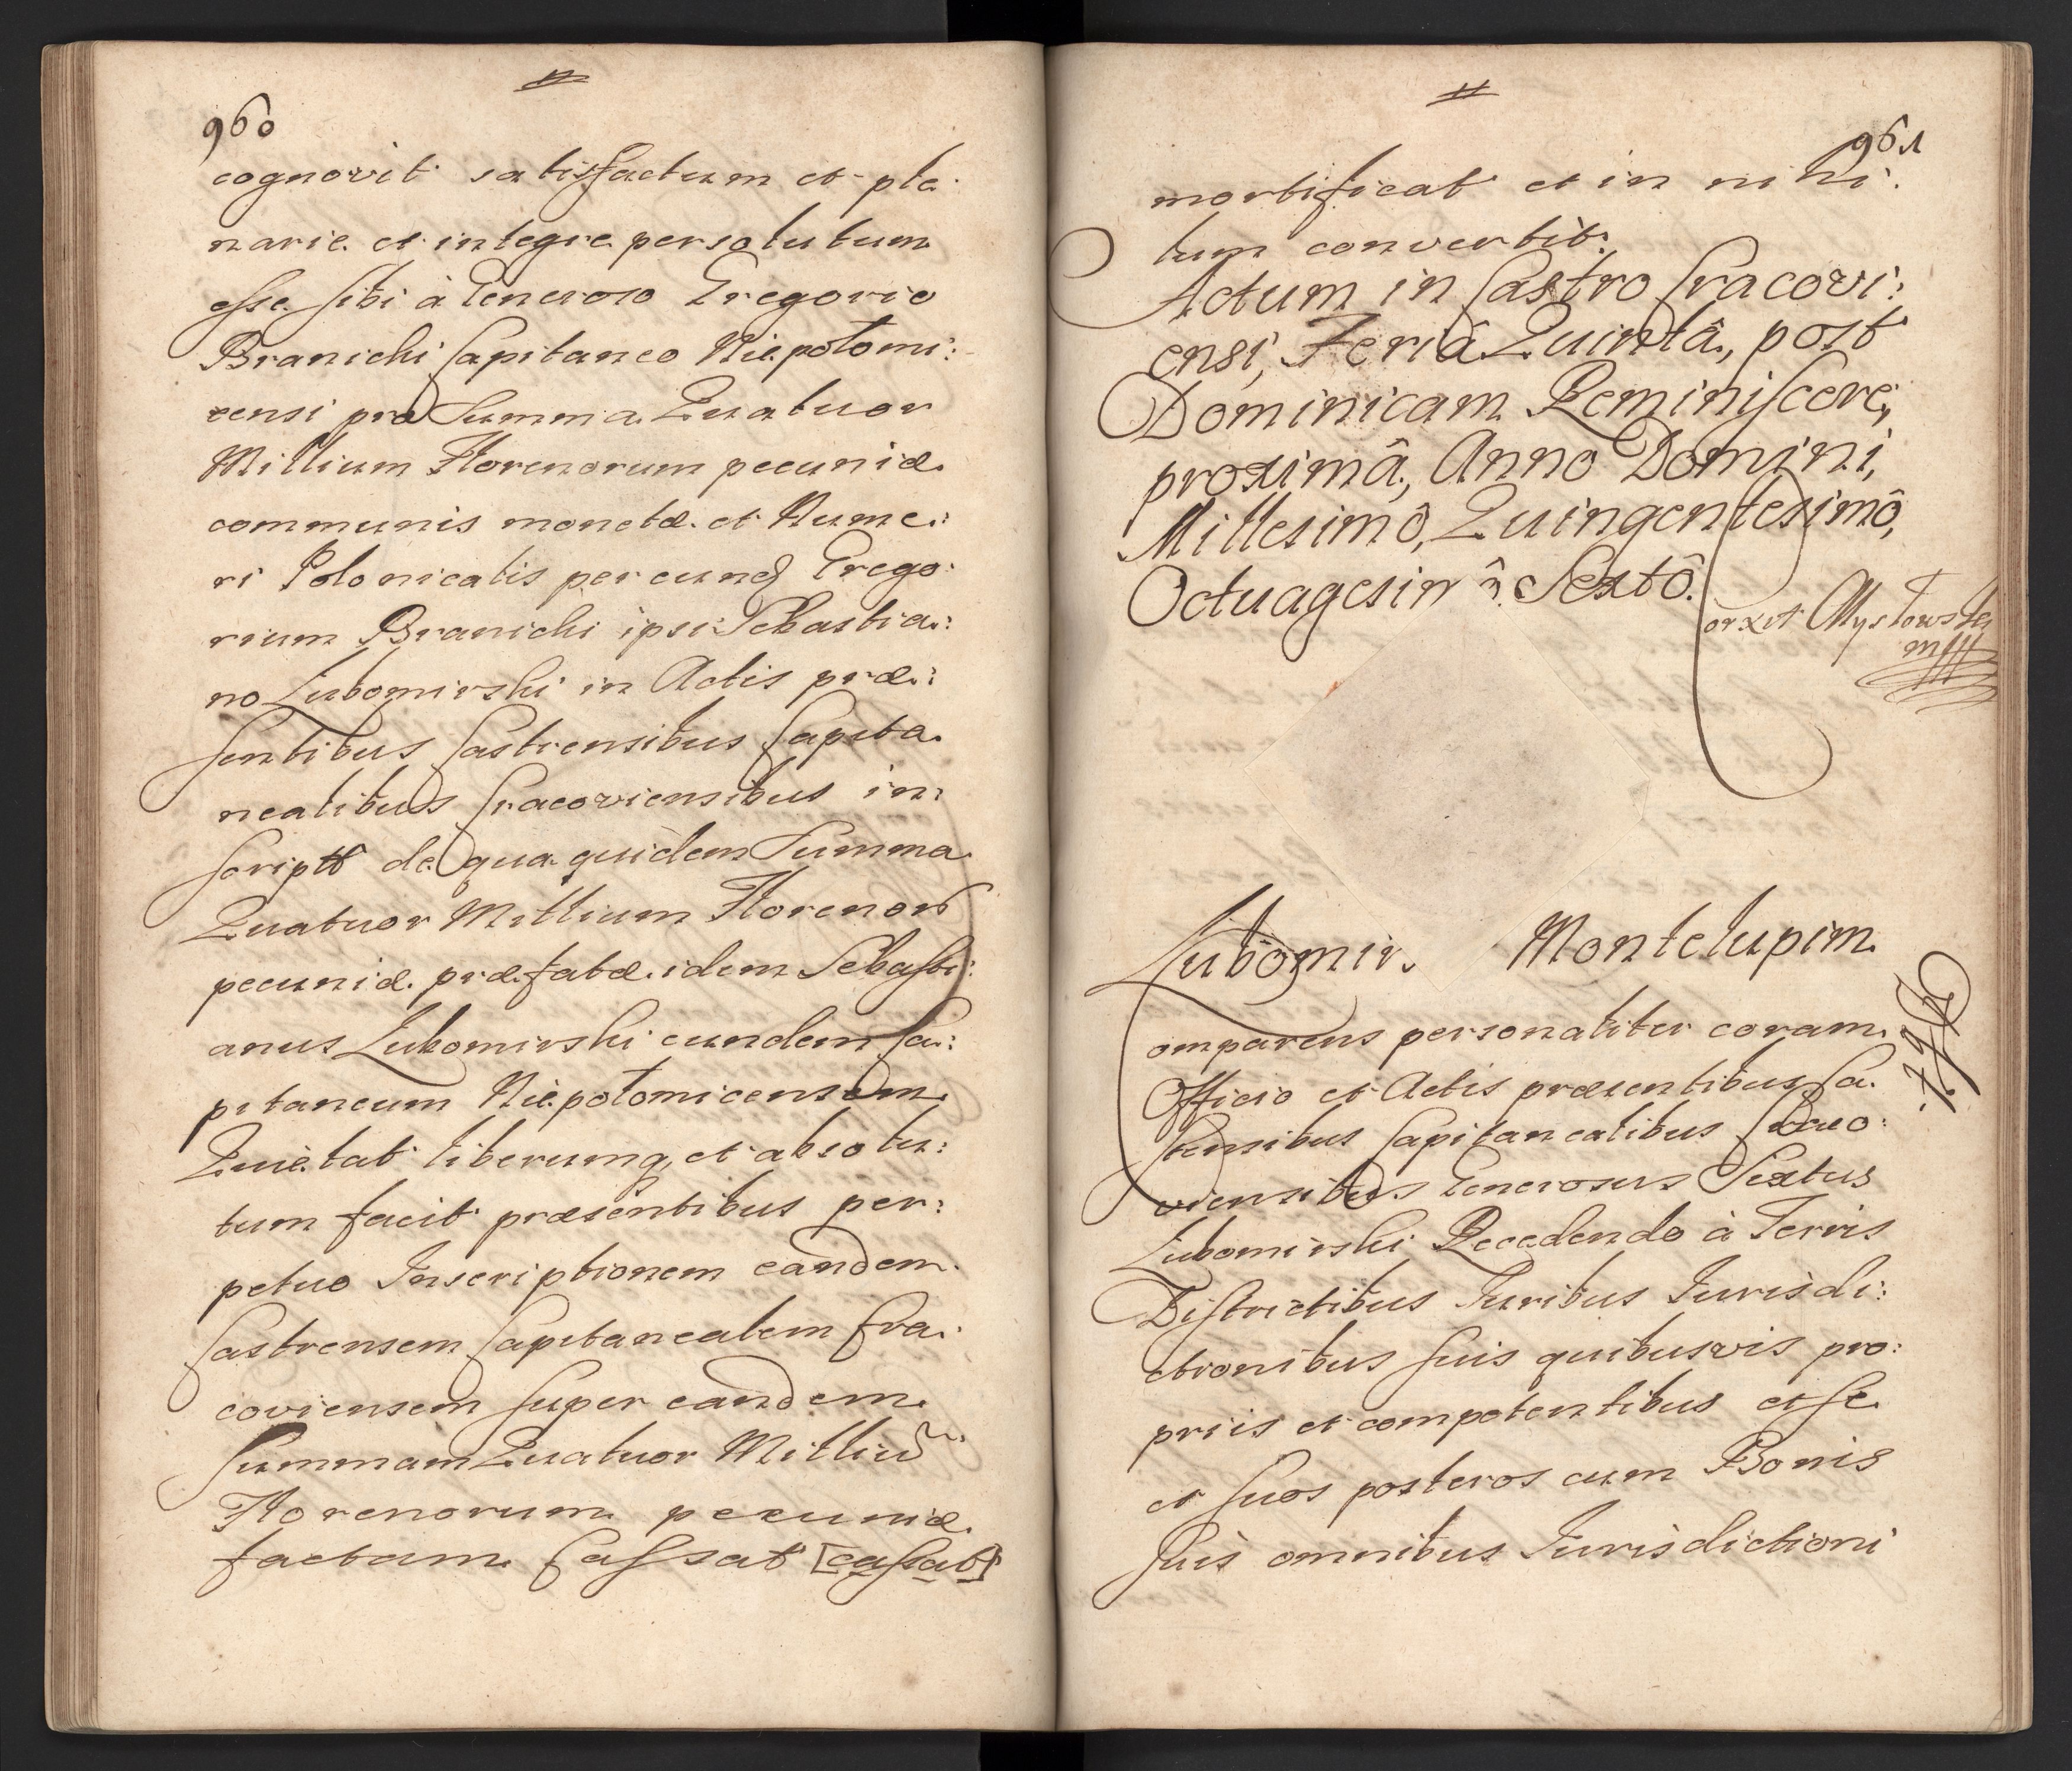 960
cognovit satisfactum et ple:
narie et integre persolutum
esse sibi à Generoso Gregorio
Branichi Capitaneo Niepołomi:
censi pro Summa Quatuor
Millium Florenorum pecuniæ
communis monetæ et Nume:
ri Polonicalis per eund Grego:
rium Branichi ipsi Sebastia:
no Lubomirski in Actis præ:
sentibus Castrensibus Capita
nealibus Cracoviensibus in:
script de qua quidem Summa
Quatuor Millium Floreno
pecuniæ præfatæ idem Sebasti:
anus Lubomirski eundem Ca:
pitaneum Niepołomicensem
Quietat liberumq et absolu:
tum facit præsentibus per:
petuo Inscriptionem eandem
Castrensem Capitanealem Cra:
coviensem super eandem
Summam Quatuor Milliu
Florenorum pecuniæ
factam Cassat [cassat]
961
mortificat et in nihi:
lum convertit.
Actum in Castro Cracovi:
ensi, Feriâ Quintâ, post
Dominicam Reminiscere,
proximâ, Anno Domini,
Millesimô, Quingentesimô,
Octuagesimô Sextô.
mpp
Lubomir. Montelupim
omparens personaliter coram
Officio et Actis præsentibus Ca
strensibus Capitanealibus Craco:
viensibus Generosus Sextus
Lubomirski Recedendo à Terris
Districtibus Iuribus Iurisdi:
ctionibus suis quibusvis pro:
priis et competentibus et se
et suos posteros cum Bonis
suis omnibus Iurisdictioni